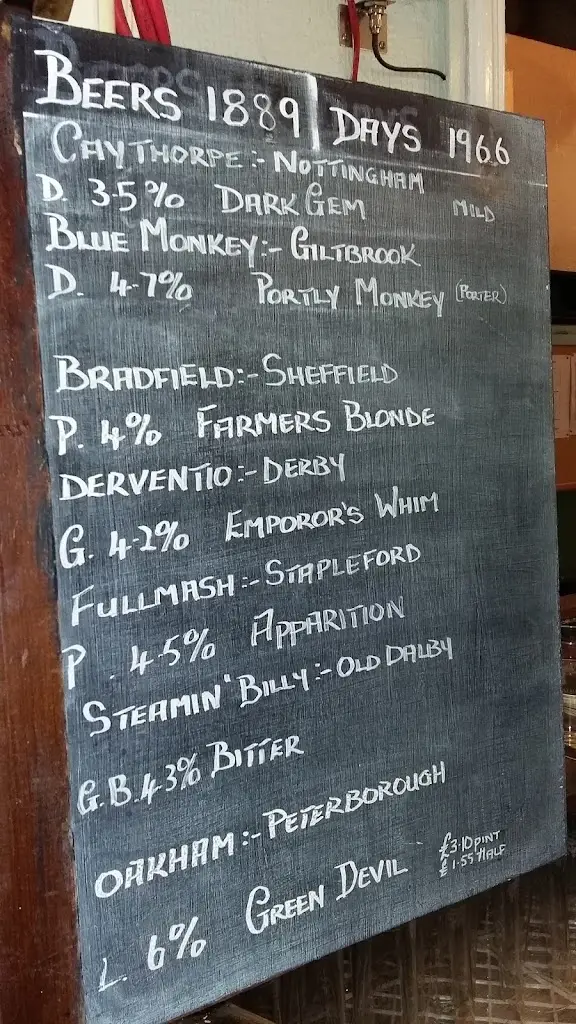 BEERS 1889 DAYS 1966
CAYTHORPE:- NOTTINGHAM
D. 3.5% DARK GEM MILD
BLUE MONKEY:- GILTBROOK
D. 4.7% PORTLY MONKEY (PORTER)
BRADFIELD:- SHEFFIELD
P. 4% FARMERS BLONDE
DERVENTIO:- DERBY
G. 4.2% EMPOROR'S WHIM
FULLMASH:- STAPLEFORD
P. 4.5% APPARITION
STEAMIN' BILLY:- OLD DALBY
G.B. 4.3% BITTER
OAKHAM:- PETERBOROUGH
L. 6% GREEN DEVIL £3.10 PINT
£1.55 HALF